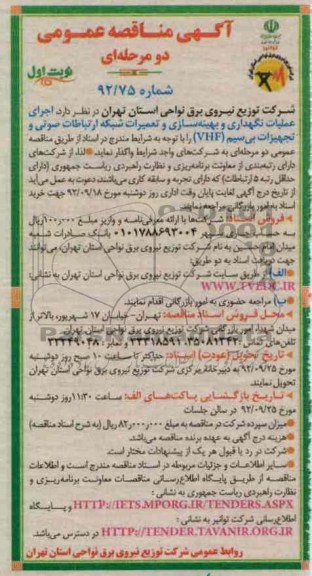 آگهی مناقصه عمومی
دو مرحله‌ای
نوبت اول
شماره ۹۲/۷۵
شرکت توزیع نیروی برق نواحی استان تهران در نظر دارد، اجرای
عملیات نگهداری و بهینه‌سازی و تعمیرات شبکه ارتباطات صوتی و
تجهیزات بی‌سیم (VHF) را با توجه به شرایط مندرج در اسناد از طریق مناقصه
عمومی دو مرحله‌ای به شرکت‌های واجد شرایط واگذار نماید. لذا، از شرکت‌های
دارای رتبه‌بندی از معاونت برنامه‌ریزی و نظارت راهبردی ریاست جمهوری (دارای
حداقل رتبه ۵ ارتباطات) که دارای تجربه و سابقه کاری می‌باشند، دعوت به عمل می‌آید
از تاریخ درج آگهی لغایت پایان وقت اداری روز دوشنبه مورخ ۹۲/۰۹/۱۸ جهت خرید
اسناد به امور بازرگانی مراجعه نمایند.
فروش اسناد: شرکت‌ها با ارائه معرفی‌نامه و واریز مبلغ ۱۰۰,۰۰۰ریال
به حساب جاری سپهر ۰۱۰۱۷۸۸۶۹۳۰۰۴ بانک صادرات شعبه
میدان به نام شرکت توزیع نیروی برق نواحی استان تهران، می‌توانند
جهت دریافت اسناد به دو طریق:
الف) از طریق سایت شرکت توزیع نیروی برق نواحی استان تهران به نشانی:
WWW.TVEDC.IR
ب) مراجعه حضوری به امور بازرگانی اقدام نمایند.
محل فروش اسناد مناقصه: تهران-خیابان ۱۷ شهریور، بالاتر از
میدان شهدا، امور بازرگانی شرکت توزیع نیروی برق نواحی استان تهران.
تلفن‌های تماس: ۳۵۰۸۱۳۴۲، ۷۳۳۱۸۵۹۱ نمابر: ۳۳۳۴۹۰۳۸
تاریخ تحویل (عودت) اسناد: حداکثر تا ساعت ۱۰ صبح روز دوشنبه
مورخ ۹۲/۰۹/۲۵ به دبیرخانه مرکزی شرکت توزیع نیروی برق نواحی استان تهران
تحویل نمایند.
تاریخ بازگشایی پاکت‌های الف: ساعت ۱۱:۳۰ روز دوشنبه
مورخ ۹۲/۰۹/۲۵ در سالن جلسات
میزان سپرده شرکت در مناقصه به مبلغ ۸۲,۰۰۰,۰۰۰ ریال (به شرح اسناد مناقصه)
هزینه درج آگهی به عهده برنده مناقصه می‌باشد.
شرکت در رد یا قبول هر یک از پیشنهادات مختار است.
سایر اطلاعات و جزئیات مربوطه در اسناد مناقصه مندرج است و اطلاعات
مناقصه از طریق پایگاه اطلاع‌رسانی مناقصات معاونت برنامه‌ریزی و
نظارت راهبردی ریاست جمهوری به نشانی:
HTTP://IETS.MPORG.IR/TENDERS.ASPX و پایگاه
اطلاع‌رسانی شرکت توانیر به نشانی:
HTTP://TENDER.TAVANIR.ORG.IR در دسترس می‌باشد.
روابط عمومی شرکت توزیع نیروی برق نواحی استان تهران